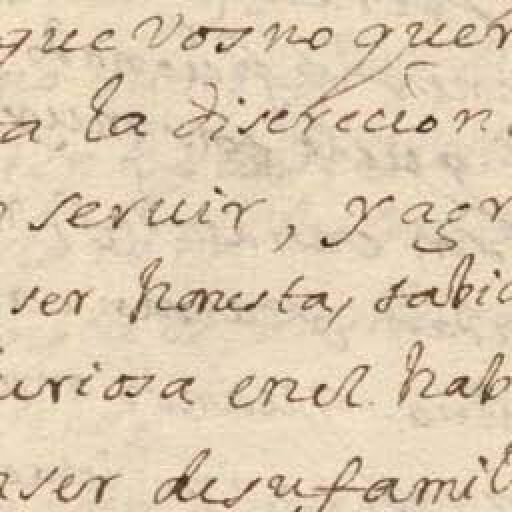 que Vos no quer
a la discrecion
servir, y agr
ser honesta, sabia
curiosa en el hab
ser de su famil